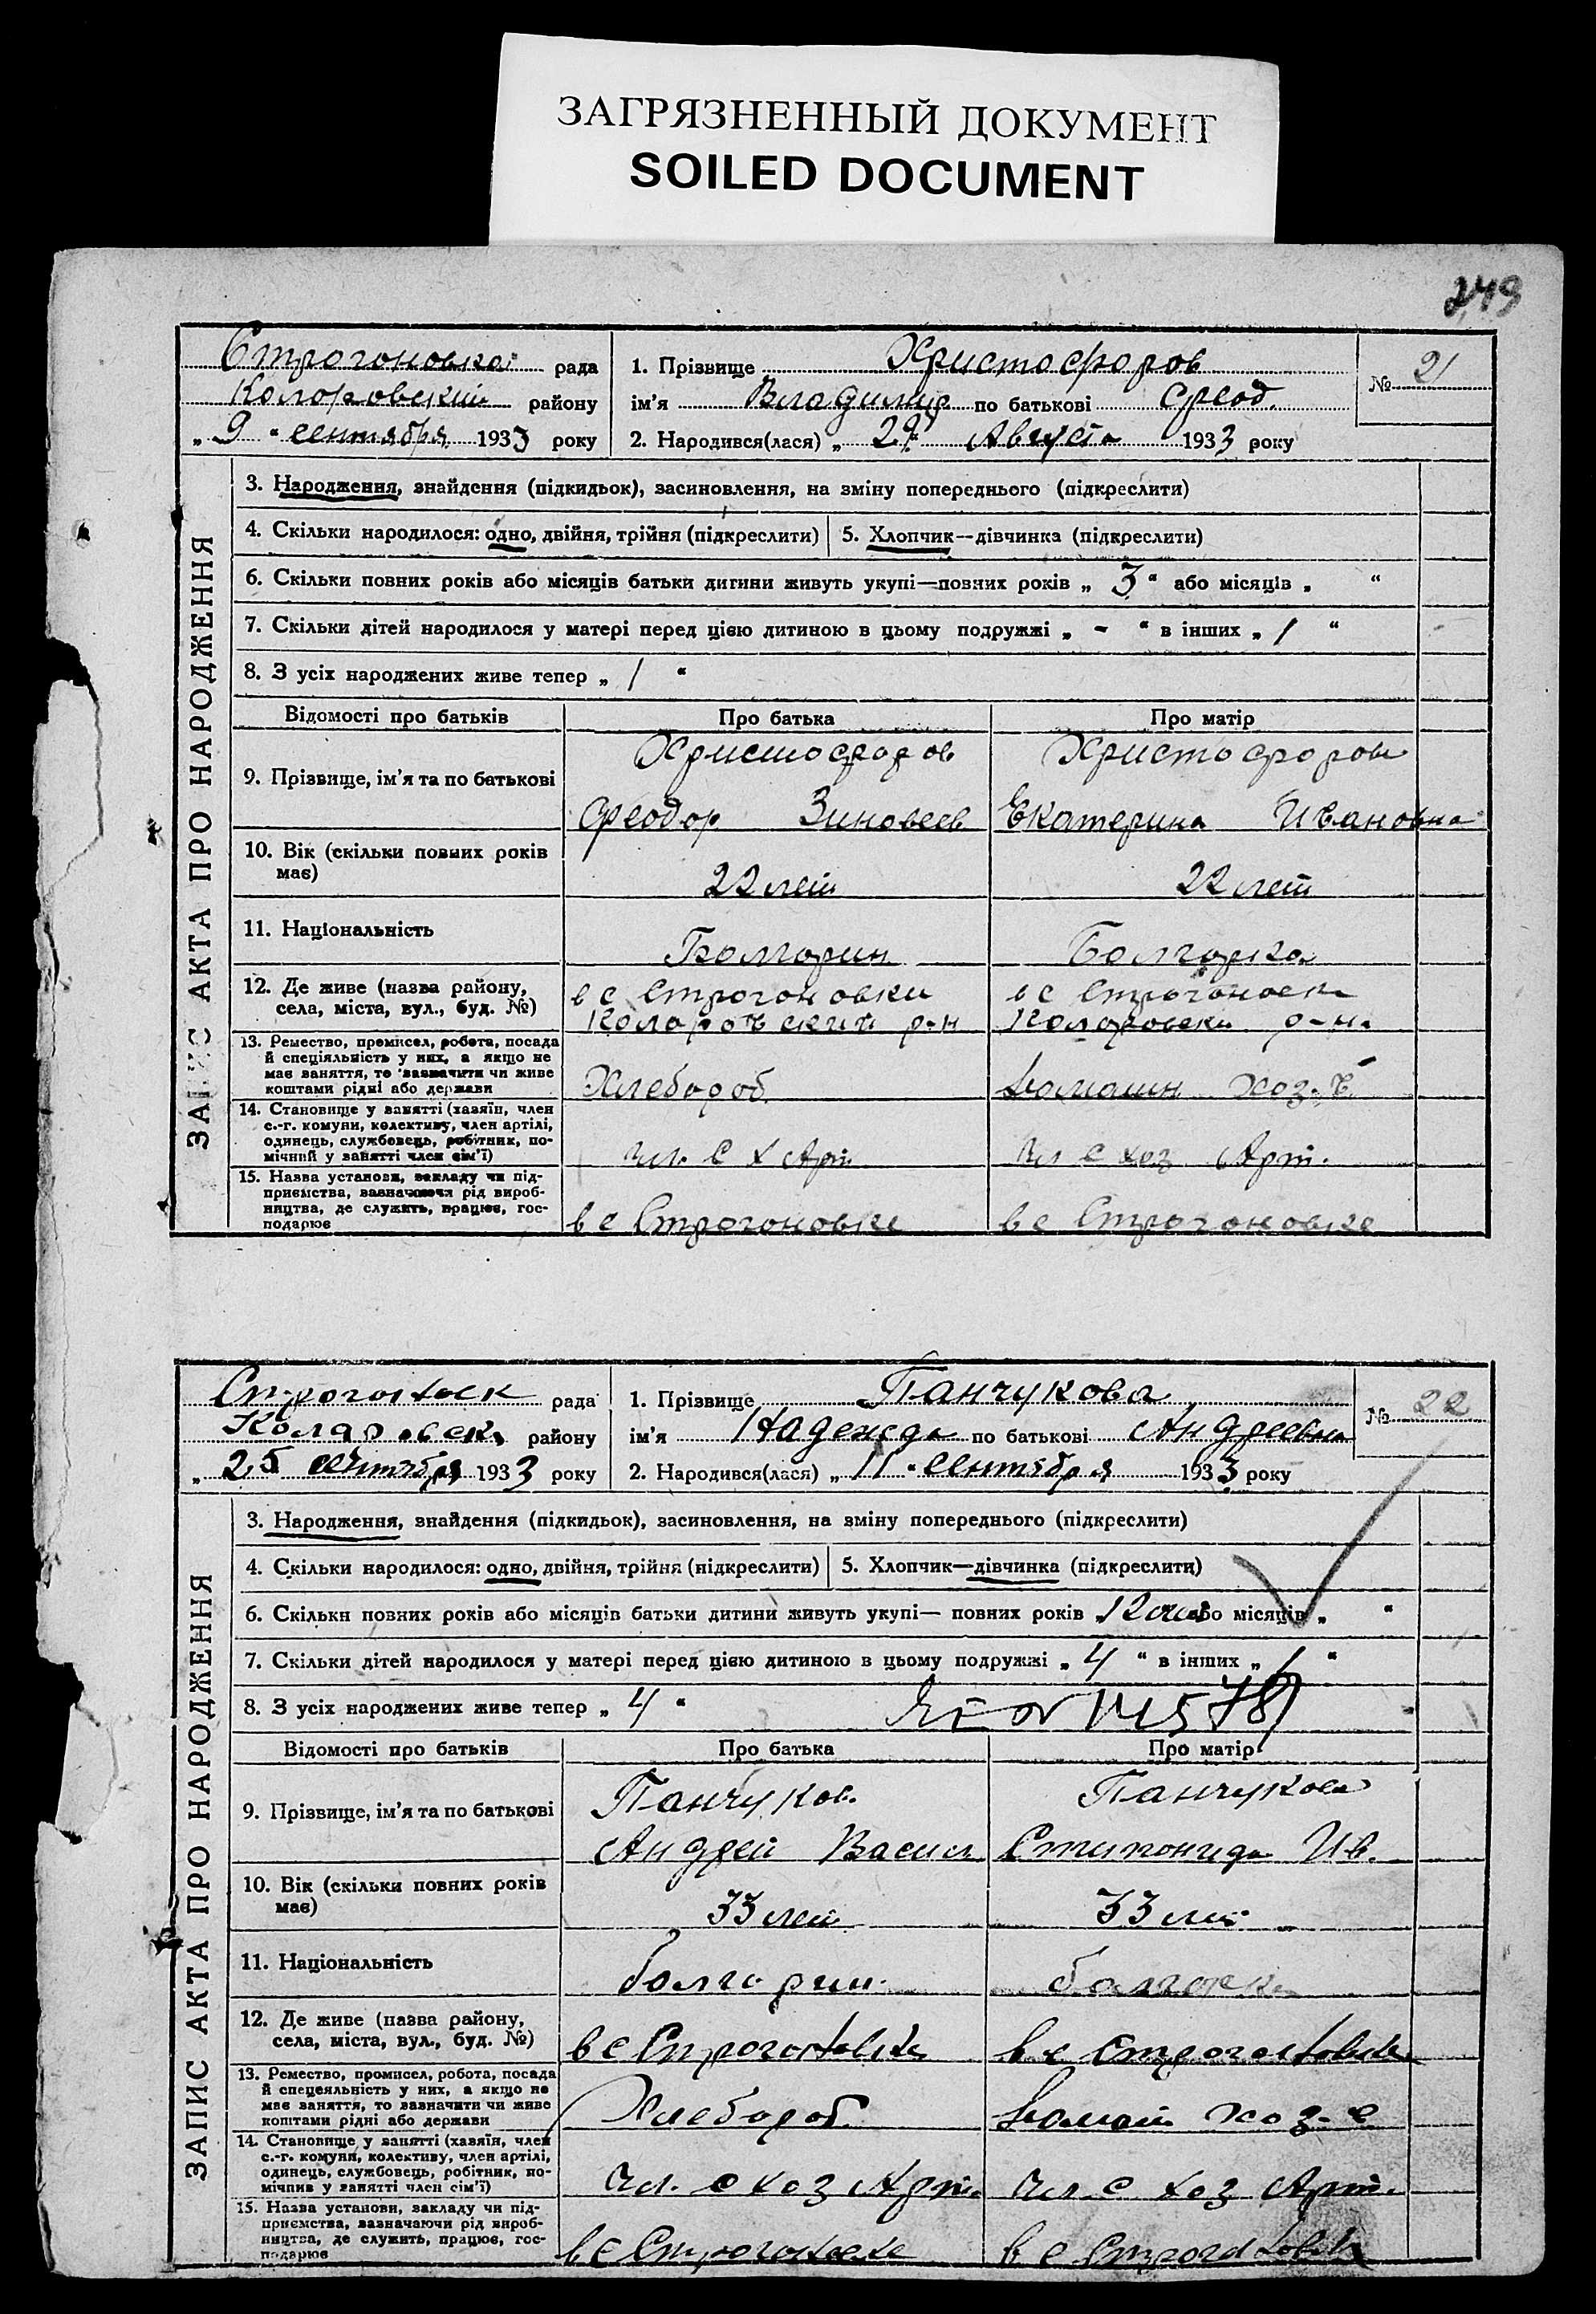 ЗАГРЯЗНЕННЫЙ ДОКУМЕНТ
SOILED DOCUMENT
249
Строгоновка рада
Коларовский району
„ 9 “ сентября 1933 року
1. Прізвище Христофоров
ім'я Владимир по батькові Феод.
2. Народився(лася) „ 29 Августа 1933 року
№ 21
ЗАПИС АКТА ПРО НАРОДЖЕННЯ
3. Народження, знайдення (підкидьок), засиновлення, на зміну попереднього (підкреслити)
4. Скільки народилося: одно, двійня, трійня (підкреслити) 5. Хлопчик—дівчинка (підкреслити)
6. Скільки повних років або місяців батьки дитини живуть укупі—повних років „ 3 “ або місяців „ “
7. Скільки дітей народилося у матері перед цією дитиною в цьому подружжі „ - “ в інших „ 1 “
8. З усіх народжених живе тепер „ 1 “
Відомості про батьків Про батька Про матір
9. Прізвище, ім'я та по батькові
Христофоров Христофорова
Феодор Зиновеев Екатерина Ивановна
10. Вік (скільки повних років
має)
22 лет 22 лет
11. Національність
Болгарин Болгарка
12. Де живе (назва району,
села, міста, вул., буд. №)
в с Строгоновки в с Строгоновки
Коларовский р-н Коларовски р-н
13. Ремество, промисел, робота, посада
й спеціяльність у них, а якщо не
має заняття, то зазначити чи живе
коштами рідні або держави
Хлебороб Домашн хоз-
14. Становище у занятті (хазяїн, член
с.-г. комуни, колективу, член артілі,
одинець, службовець, робітник, по-
мічний у занятті член сім'ї)
чл. с х Арт. чл с хоз Арт.
15. Назва установи, закладу чи під-
приємства, зазначаючи рід вироб-
ництва, де служить, працює, гос-
подарює
в с Строгоновке в с Строгоновке
рада
Коларовск району
„ 25 сентября 1933 року
1. Прізвище Панчукова
ім'я Надежда по батькові Андреевна
2. Народився(лася) „ 11 “ сентября 1933 року
№ 22
ЗАПИС АКТА ПРО НАРОДЖЕННЯ
3. Народження, знайдення (підкидьок), засиновлення, на зміну попереднього (підкреслити)
4. Скільки народилося: одно, двійня, трійня (підкреслити) 5. Хлопчик—дівчинка (підкреслити)
6. Скільки повних років або місяців батьки дитини живуть укупі— повних років „ 12 або місяців „ “
7. Скільки дітей народилося у матері перед цією дитиною в цьому подружжі „ 4 “ в інших „ / “
8. З усіх народжених живе тепер „ 4 “
Відомості про батьків Про батька Про матір
9. Прізвище, ім'я та по батькові
Панчуков Панчукова
Андрей Васил Ив.
10. Вік (скільки повних років
має)
33 лет 33 лет
11. Національність
болгарин болгарк
12. Де живе (назва району,
села, міста, вул., буд. №)
в с в с
13. Ремество, промисел, робота, посада
й спецеяльність у них, а якщо не
має заняття, то зазначити чи живе
коштами рідні або держави
Хлебороб хоз-
14. Становище у занятті (хазяїн, член
с.-г. комуни, колективу, член артілі,
одинець, службовець, робітник, по-
мічнив у занятті член сім'ї)
чл. с хоз Арт. чл с хоз Арт.
15. Назва установи, закладу чи під-
приємства, зазначаючи рід вироб-
ництва, де служить, працює, гос-
подарює
в с в с